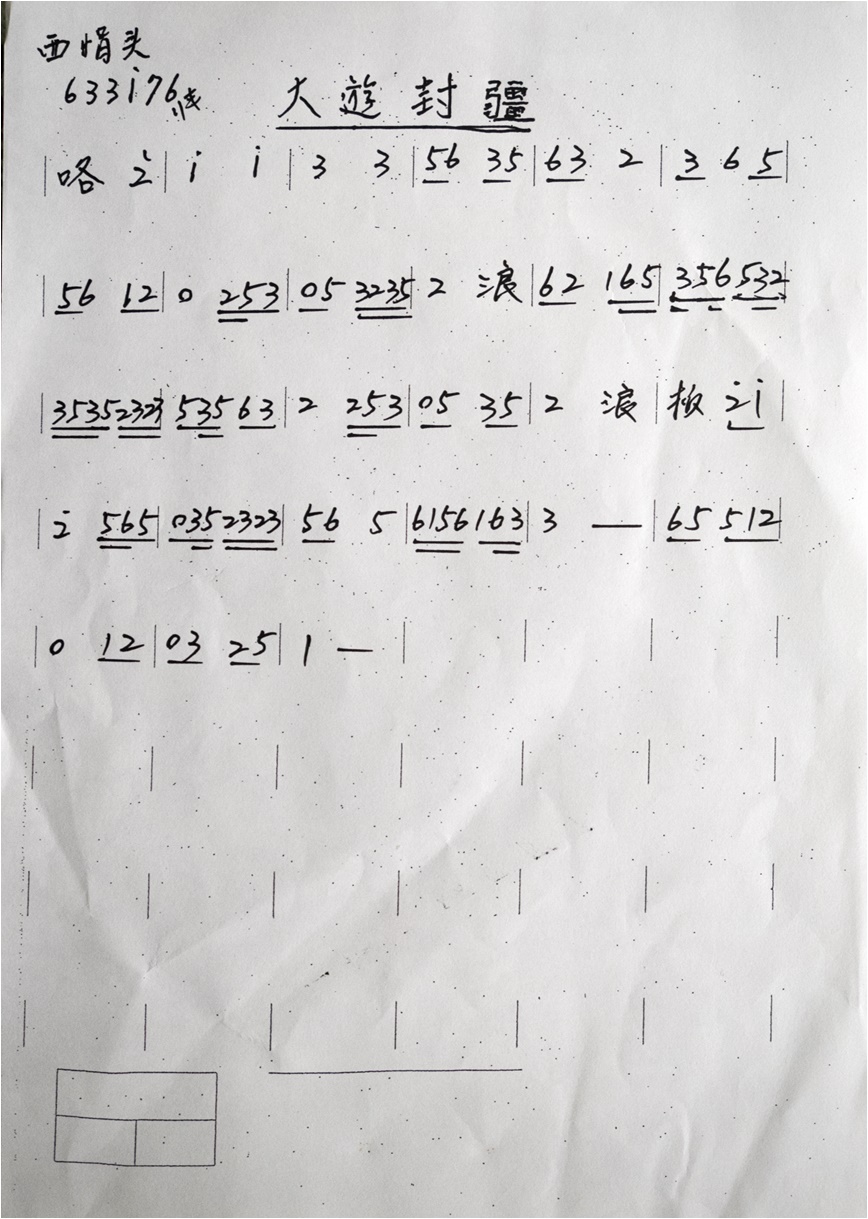 西悄头
633i76
大遊封疆
|咯 2̇|i i|3 3|56 35|63 2|3 6 5|
|56 12|0 253|05 3235|2 浪|62 165|356532|
|35352323|53563|2 253|05 35|2 浪|板 2̇i|
|2̇ 565|0352323|56 5|6156163|3 —|65 512|
|0 12|03 25|1 —|